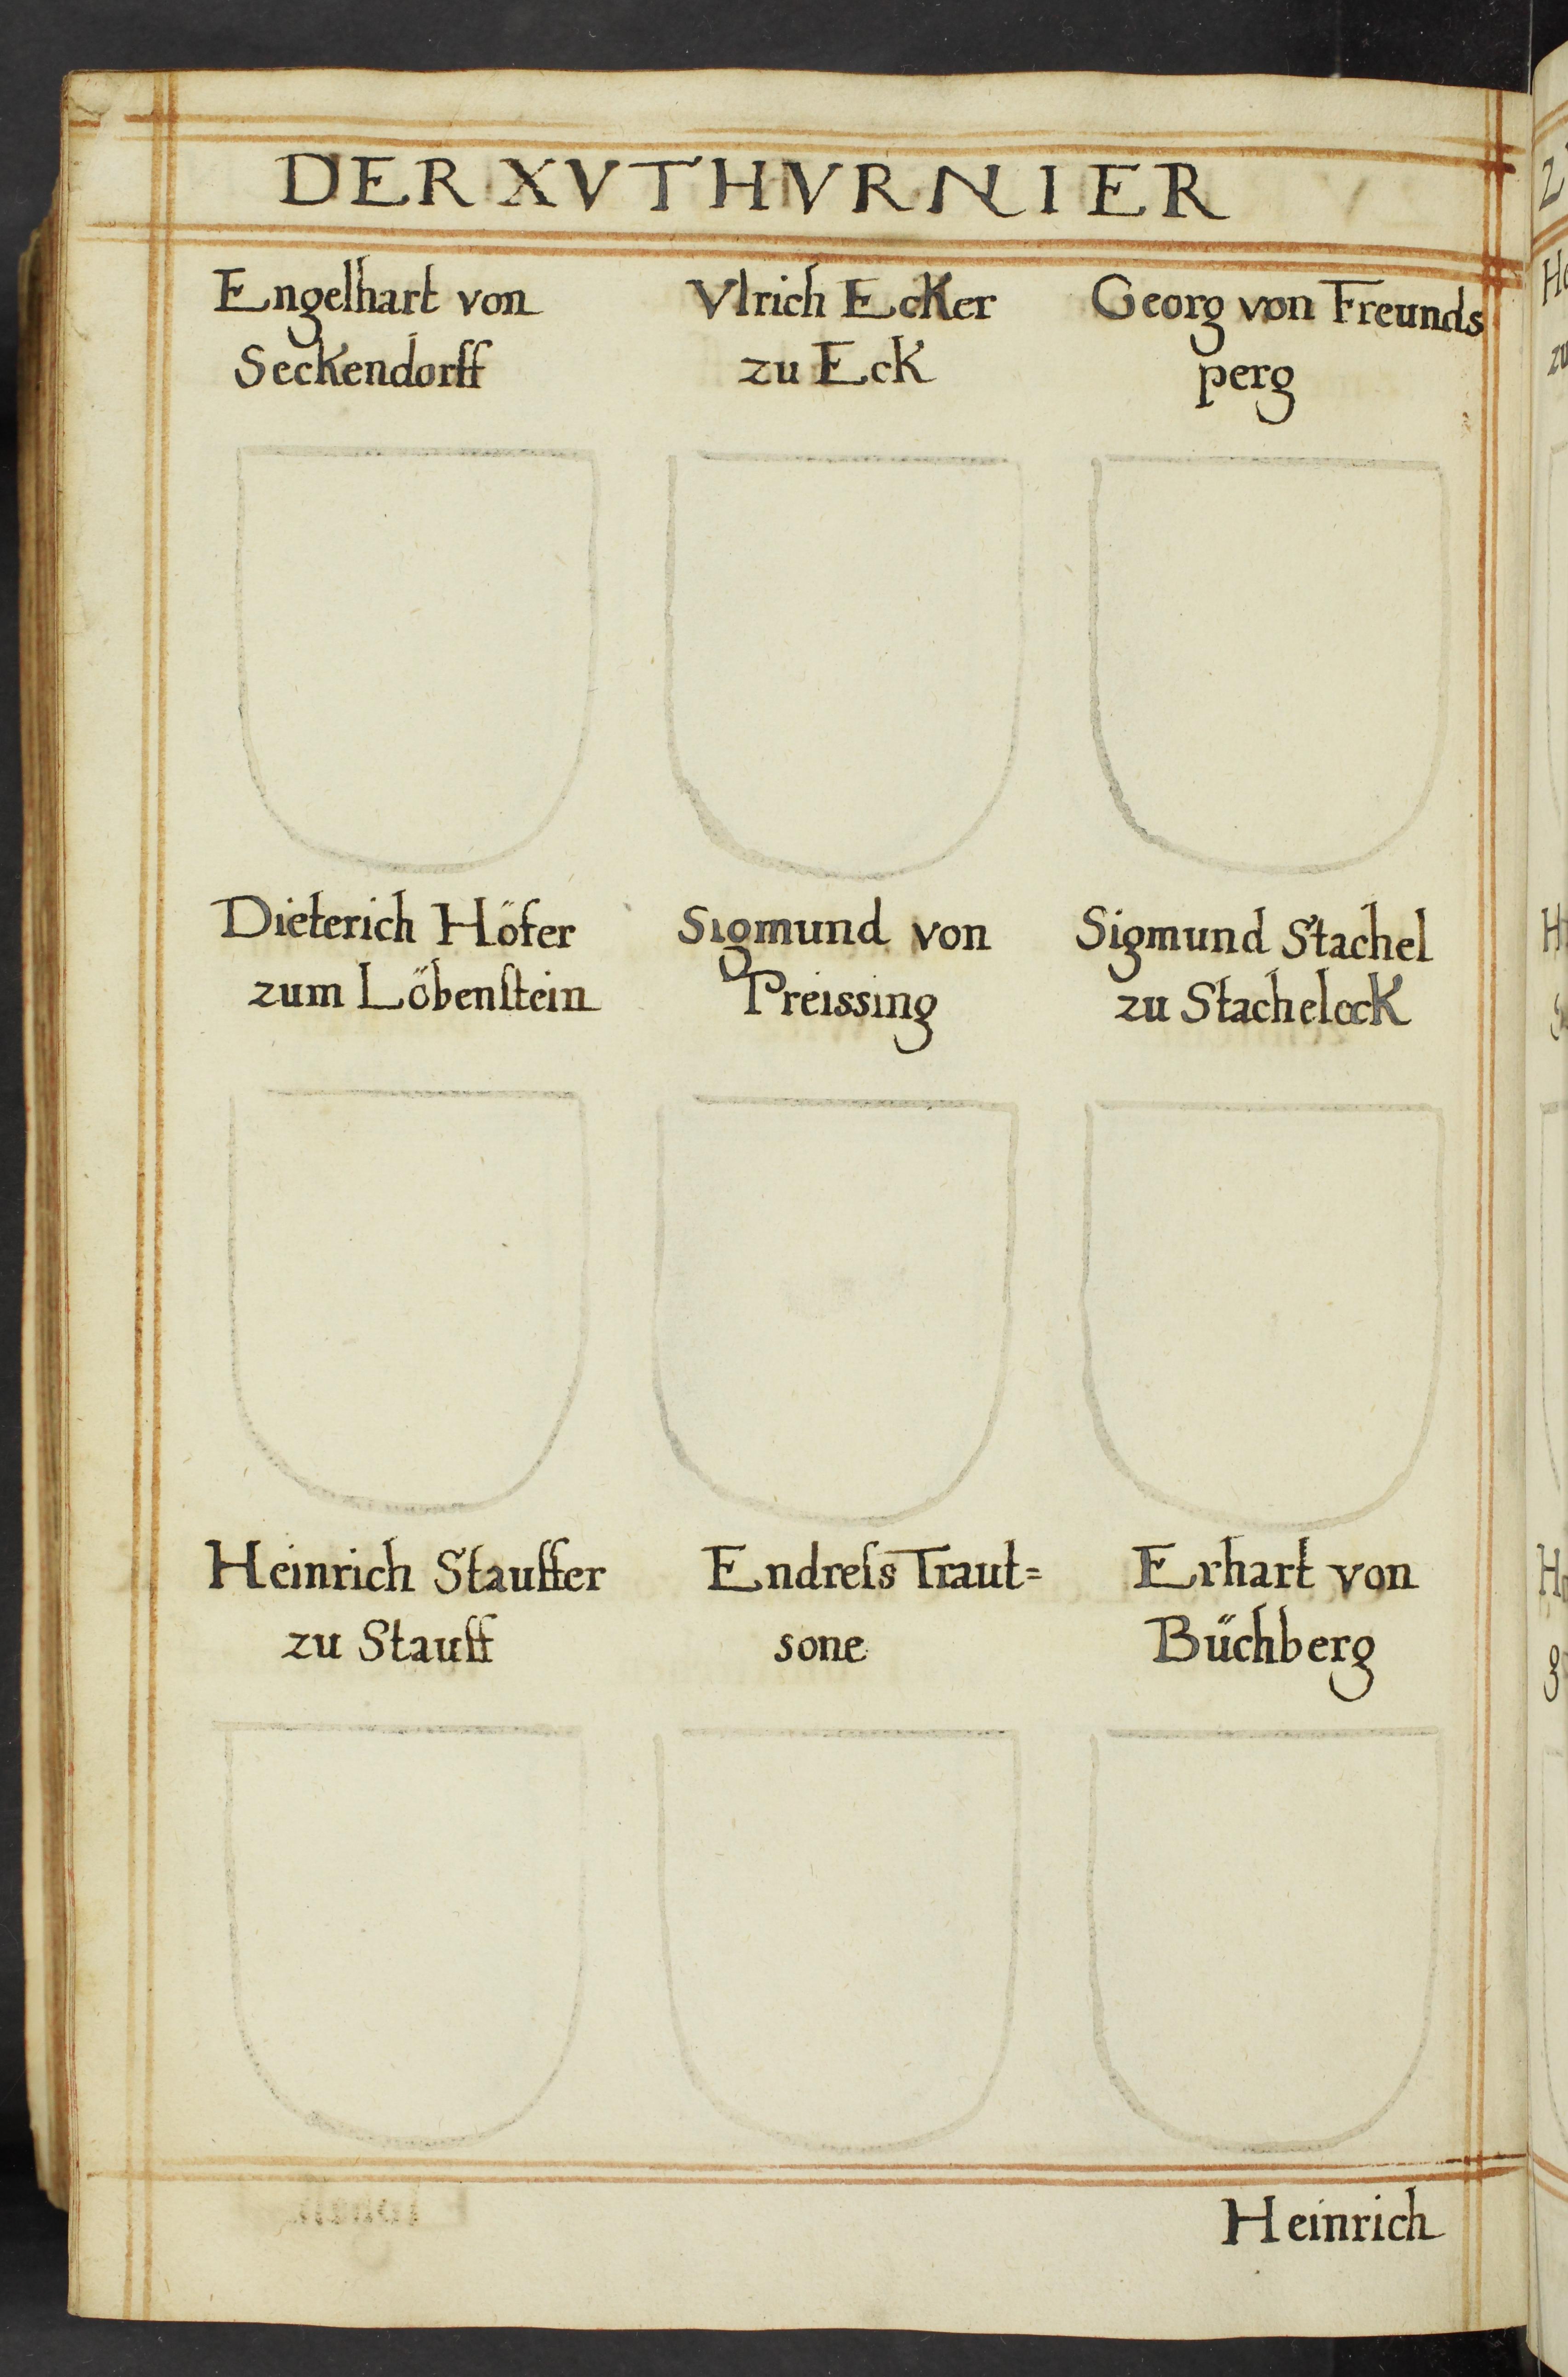 DER XV THVRNIER
Engelhart von
Seckendorff
Vlrich Ecker
zu Eck
Georg von Freunds
perg
Dieterich Höfer
zum Löbenſtein
Sigmund von
Preissing
Sigmund Stachel
zu Stacheleck
Heinrich Stauffer
zu Stauff
Endreſs Traut=
sone
Erhart von
Büchberg
Heinrich